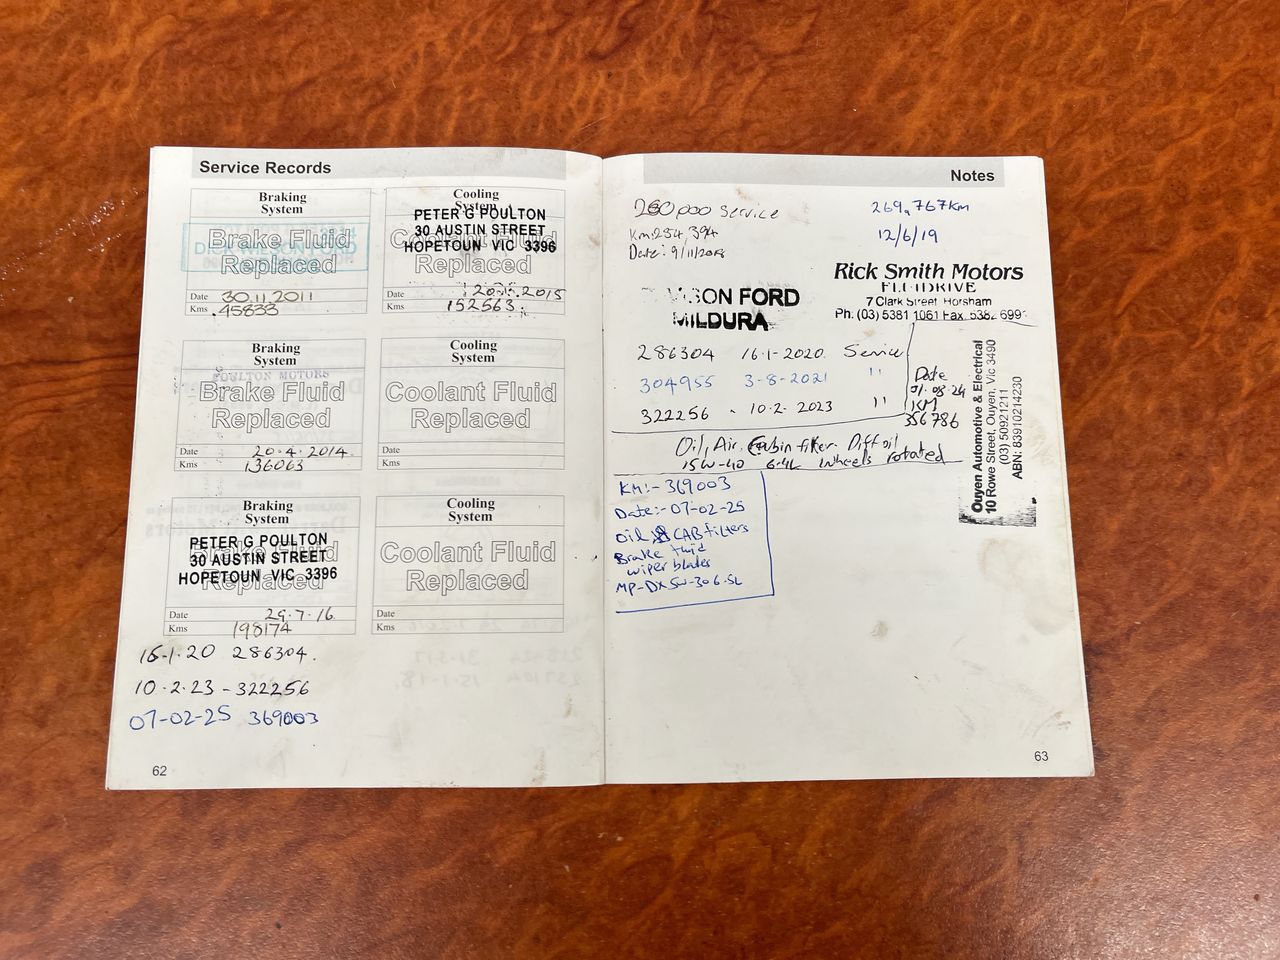 Service Records
Braking
System
Brake Fluid
Replaced
DICK WILSON FORD
Date 30.11.2011
Kms 45833
Cooling
System
Coolant Fluid
Replaced
PETER G POULTON
30 AUSTIN STREET
HOPETOUN VIC 3396
Date 2015
Kms 152563
Braking
System
POULTON MOTORS
Brake Fluid
Replaced
Date 20.4.2014
Kms 136063
Cooling
System
Coolant Fluid
Replaced
Date
Kms
Braking
System
Brake Fluid
Replaced
PETER G POULTON
30 AUSTIN STREET
HOPETOUN VIC 3396
Date 29.7.16
Kms 198174
Cooling
System
Coolant Fluid
Replaced
Date
Kms
16.1.20 286304.
10.2.23 - 322256
07-02-25 369003
62
Notes
260 000 Service
Km 254,394
Date: 9/11/2018
FORD
MILDURA
269,767km
12/6/19
Rick Smith Motors
FLUIDRIVE
7 Clark Street Horsham
Ph. (03) 5381 1061 Fax 5382 6991
286304 16.1-2020. Service
304955 3-8-2021 "
322256 - 10.2.2023 "
Date
01.08.24
KM
356786
Ouyen Automotive & Electrical
10 Rowe Street, Ouyen, Vic 3490
(03) 50921211
ABN: 83910214230
Oil, Air, Cabin filter. Diff oil
15W-40 6.4L wheels rotated
KM:- 369003
Date:- 07-02-25
Oil & CAB filters
Brake fluid
wiper blades
MP-DX 5W-30 6.5L
63